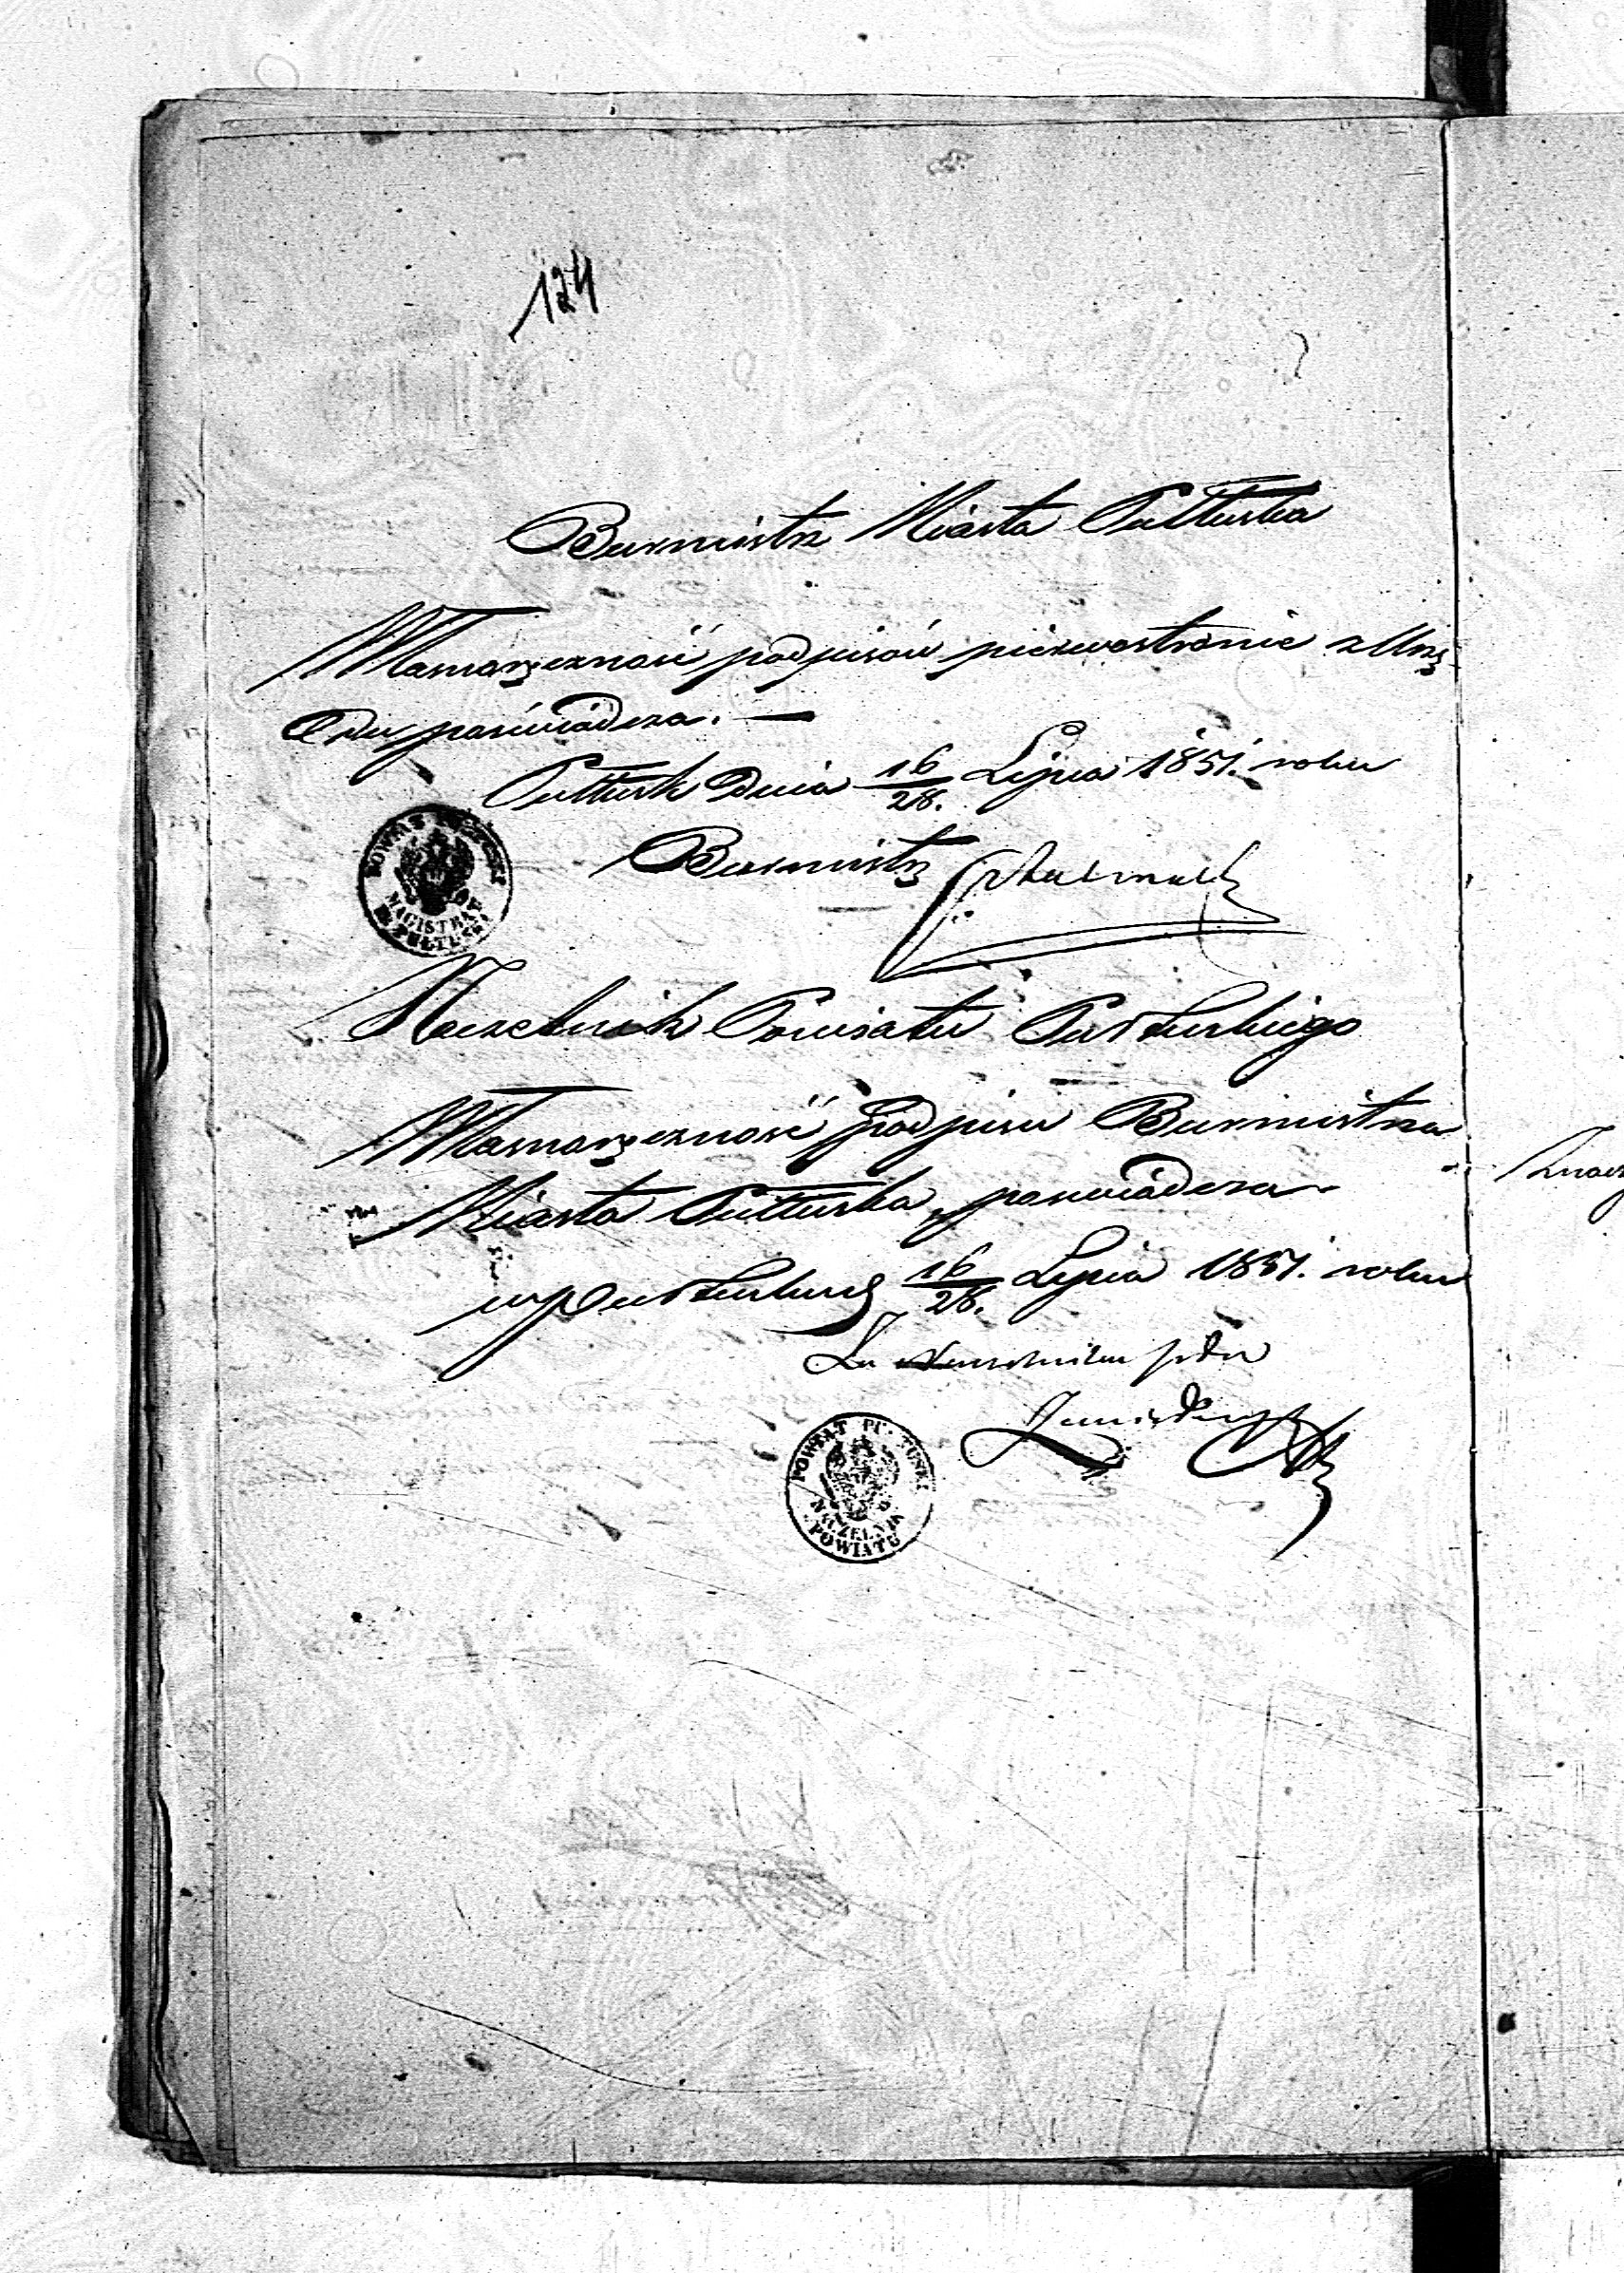 124
Burmistrz Miasta Pułtuska
Własnoręczność podpisów pierwostronie z Urzę
du poświadcza. —
Pułtusk Dnia 16/28. Lipca 1851. roku
Burmistrz
POWIAT PUŁTUSKI
MAGISTRAT
M. PUŁTUSK
Naczelnik Powiatu Pułtuskiego
Własnoręczność podpisu Burmistrza
Miasta Pułtuska, poświadcza
w Pułtusku d 16/28. Lipca 1851. roku
POWIAT PUŁTUSKI
NACZELNIK
POWIATU